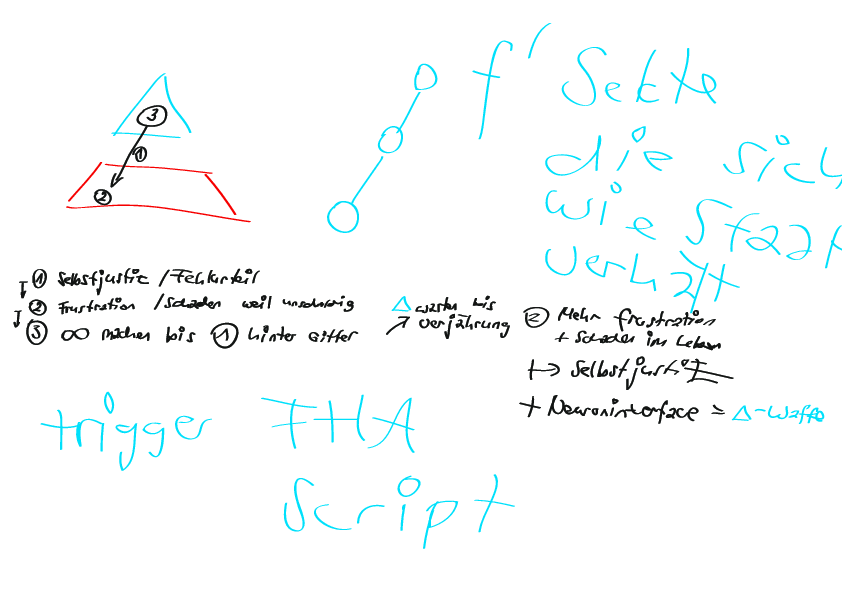 f' Sekte
die sich
wie Staat
verhält
3
1
2
① Selbstjustiz / Fehlurteil
② Frustration / Schaden weil unschuldig
③ ∞ machen bis ① hinter Gitter
Δ warten bis
↗ Verjährung
② Mehr frustration
+ Schaden im Leben
↦ Selbstjustiz
+ Neuroninterface = Δ-Waffe
trigger FHA
Script